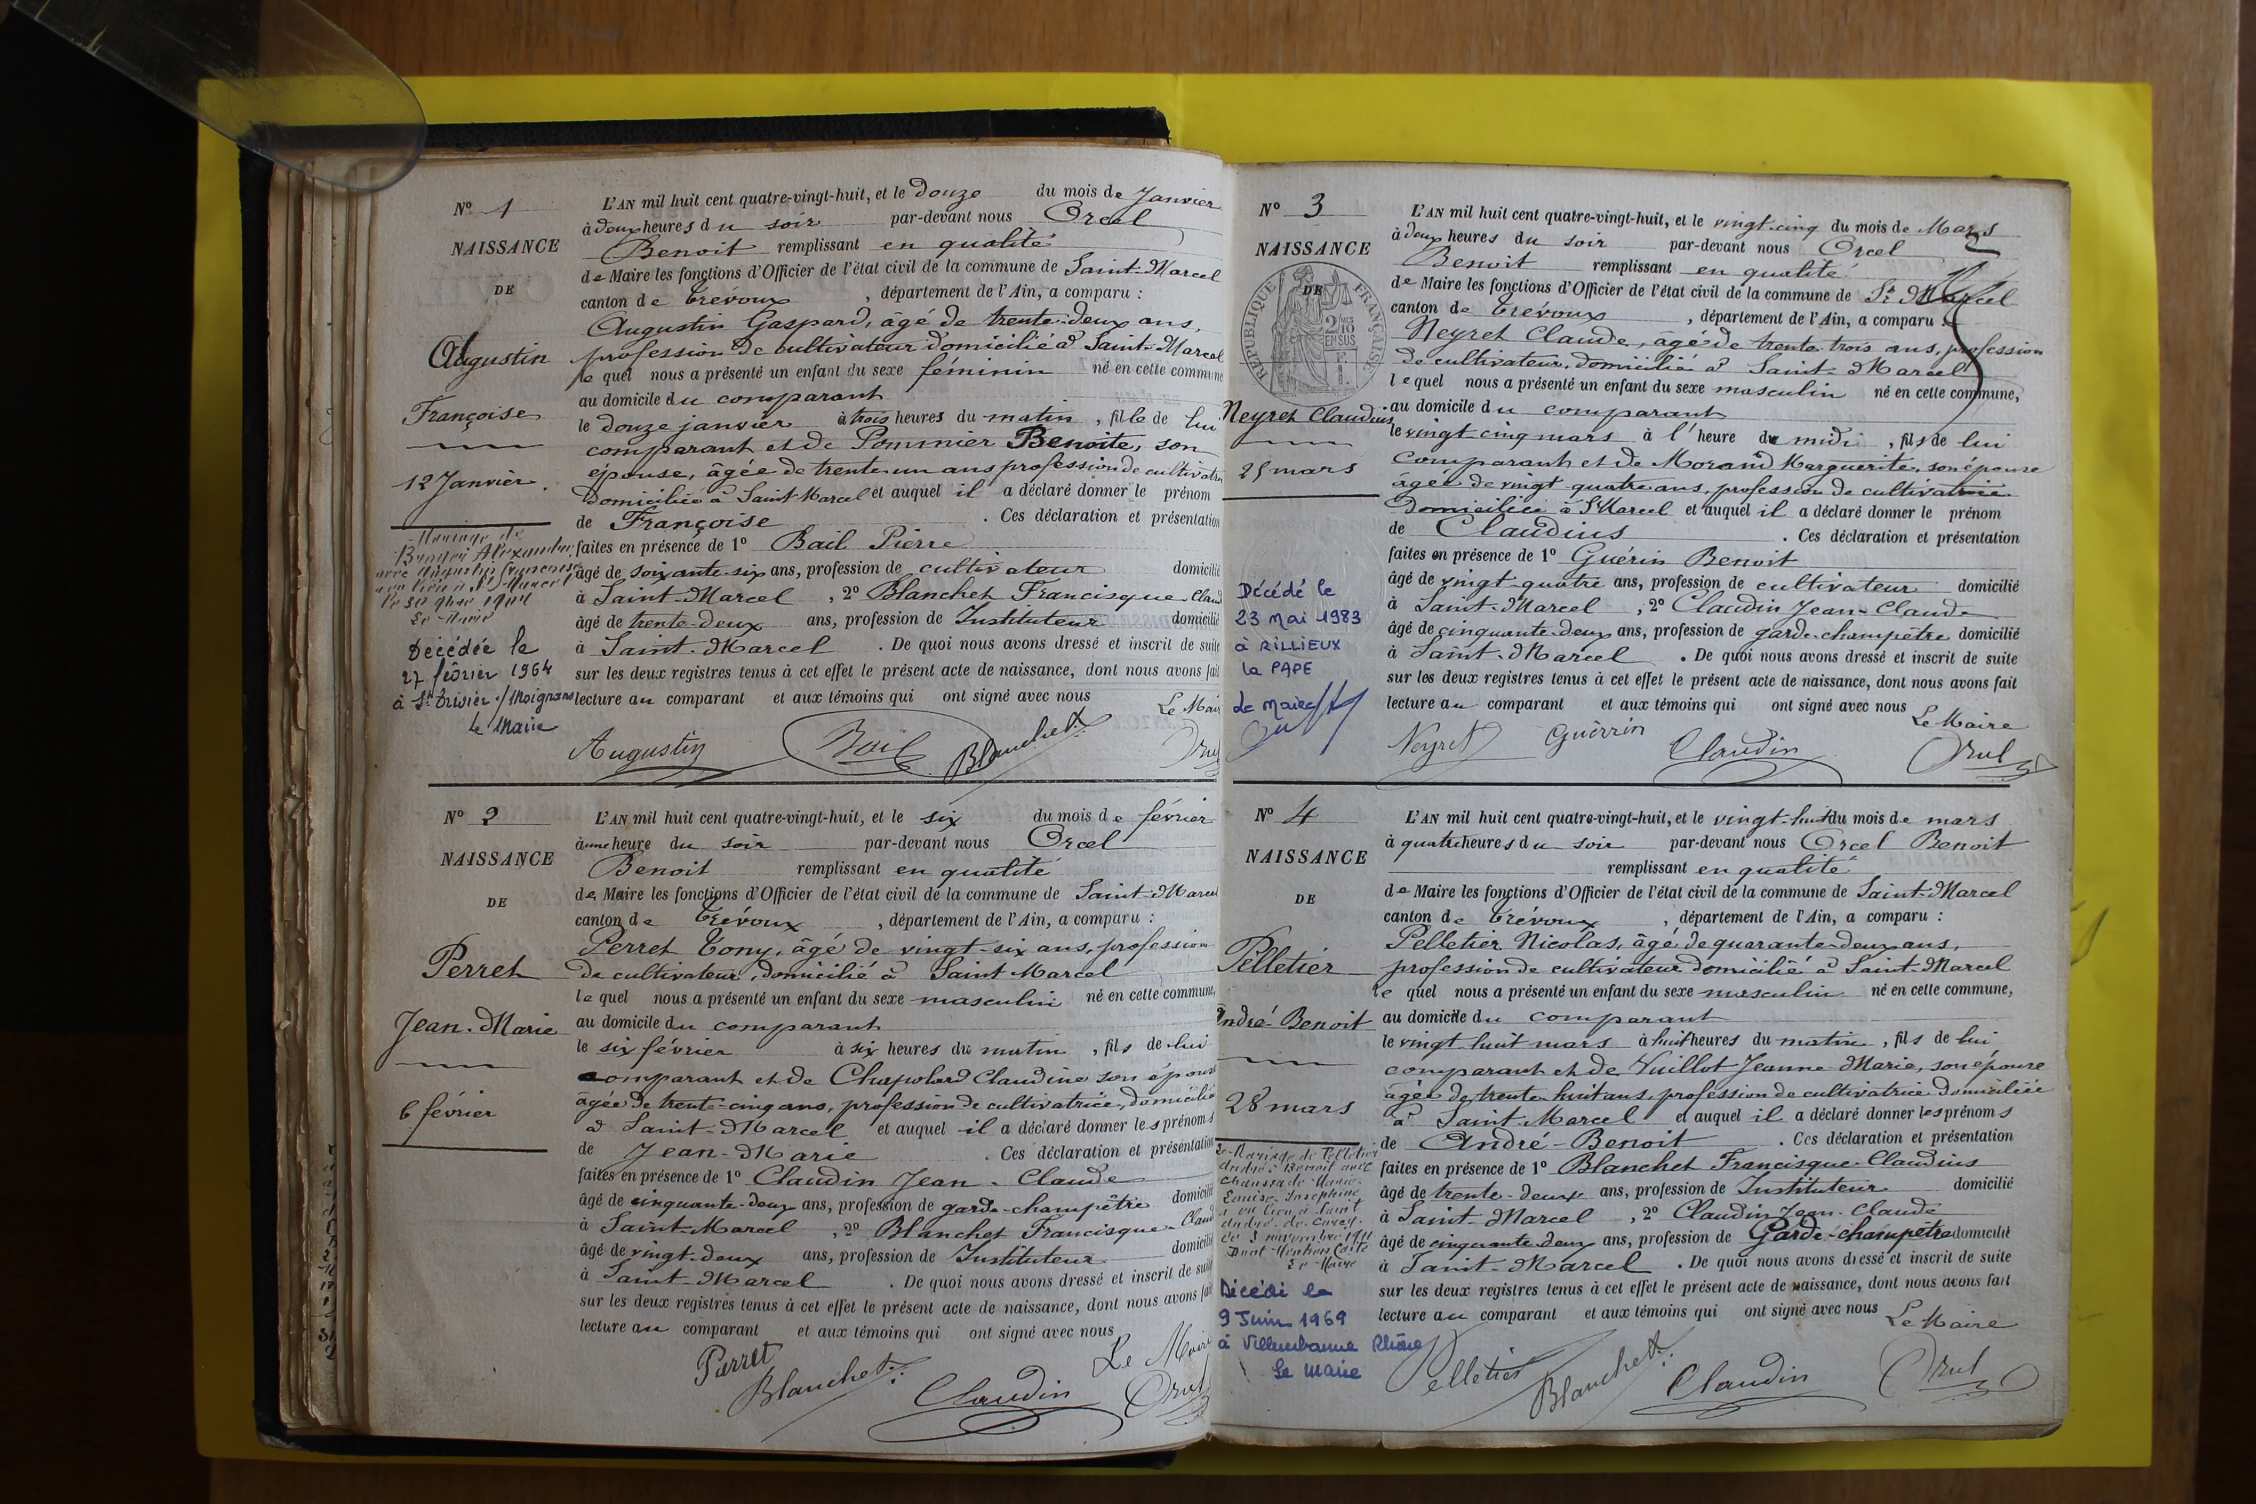 Nº 1
NAISSANCE
DE
Augustin
Françoise
12 Janvier.
Mariage de
avec Augustin Françoise
Le Maire
Décédée le
27 février 1964
à St Trivier s/ Moignans
Le Maire
L'AN mil huit cent quatre-vingt-huit, et le douze du mois de Janvier
à deux heures du soir par-devant nous Orcel
Benoit remplissant en qualité
de Maire les fonctions d'Officier de l'état civil de la commune de Saint-Marcel
canton de Trévoux, département de l'Ain, a comparu :
Augustin Gaspard, âgé de trente-deux ans,
profession de cultivateur domicilié à Saint-Marcel
lequel nous a présenté un enfant du sexe féminin né en cette commune
au domicile du comparant
le douze janvier à trois heures du matin, fille de lui
comparant et de Pommier Benoite, son
épouse, âgée de trente un ans profession de cultivatrice
domiciliée à Saint Marcel et auquel il a déclaré donner le prénom
de Françoise. Ces déclaration et présentation
faites en présence de 1º Bail Pierre
âgé de soixante-six ans, profession de cultivateur domicilié
à Saint-Marcel, 2º Blanchet Francisque-Claud
âgé de trente-deux ans, profession de Instituteur domicilié
à Saint-Marcel. De quoi nous avons dressé et inscrit de suite
sur les deux registres tenus à cet effet le présent acte de naissance, dont nous avons fait
lecture au comparant et aux témoins qui ont signé avec nous
Le Maire
Augustin Bail Blanchet
Nº 2
NAISSANCE
DE
Perret
Jean-Marie
6 février
L'AN mil huit cent quatre-vingt-huit, et le six du mois de février
à une heure du soir par-devant nous Orcel
Benoit remplissant en qualité
de Maire les fonctions d'Officier de l'état civil de la commune de Saint-Marcel
canton de Trévoux, département de l'Ain, a comparu :
Perret Tony, âgé de vingt-six ans, profession
de cultivateur, domicilié à Saint Marcel
lequel nous a présenté un enfant du sexe masculin né en cette commune,
au domicile du comparant
le six février à six heures du matin, fils de lui
comparant et de Chapolard Claudine son épouse
âgée de trente-cinq ans, profession de cultivatrice, domiciliée
à Saint-Marcel et auquel il a déclaré donner les prénoms
de Jean-Marie. Ces déclaration et présentation
faites en présence de 1º Claudin Jean-Claude
âgé de cinquante-deux ans, profession de garde-champêtre domicilié
à Saint-Marcel, 2º Blanchet Francisque-Claud
âgé de vingt-deux ans, profession de Instituteur domicilié
à Saint-Marcel. De quoi nous avons dressé et inscrit de suite
sur les deux registres tenus à cet effet le présent acte de naissance, dont nous avons fait
lecture au comparant et aux témoins qui ont signé avec nous
Le Maire
Perret
Blanchet Claudin
Nº 3
NAISSANCE
DE
REPUBLIQUE FRANÇAISE
EN SUS
Neyret Claudius
25 mars
Décédé le
23 Mai 1983
à RILLIEUX
la PAPE
Le Maire
L'AN mil huit cent quatre-vingt-huit, et le vingt-cinq du mois de Mars
à deux heures du soir par-devant nous Orcel
Benoit remplissant en qualité
de Maire les fonctions d'Officier de l'état civil de la commune de St Marcel
canton de Trévoux, département de l'Ain, a comparu :
Neyret Claude, âgé de trente-trois ans, profession
de cultivateur, domicilié à Saint-Marcel
lequel nous a présenté un enfant du sexe masculin né en cette commune,
au domicile du comparant
le vingt cinq mars à l'heure du midi, fils de lui
comparant et de Morand Marguerite, son épouse
âgée de vingt quatre ans, profession de cultivatrice
domiciliée à St Marcel et auquel il a déclaré donner le prénom
de Claudius. Ces déclaration et présentation
faites en présence de 1º Guérin Benoit
âgé de vingt-quatre ans, profession de cultivateur domicilié
à Saint-Marcel, 2º Claudin Jean-Claude
âgé de cinquante-deux ans, profession de garde-champêtre domicilié
à Saint-Marcel. De quoi nous avons dressé et inscrit de suite
sur les deux registres tenus à cet effet le présent acte de naissance, dont nous avons fait
lecture au comparant et aux témoins qui ont signé avec nous
Le Maire
Neyret Guérrin Claudin
Nº 4
NAISSANCE
DE
Pelletier
André-Benoit
28 mars
Le Mariage de Pelletier
André Benoit avec
Louise Joséphine
a eu lieu à Saint
André-de-Corcy
Dont Mention faite
Le Maire
Décédé le
9 Juin 1969
à Villeurbanne Rhône
Le Maire
L'AN mil huit cent quatre-vingt-huit, et le vingt-huit du mois de mars
à quatre heures du soir par-devant nous Orcel Benoit
remplissant en qualité
de Maire les fonctions d'Officier de l'état civil de la commune de Saint-Marcel
canton de Trévoux, département de l'Ain, a comparu :
Pelletier Nicolas, âgé de quarante-deux ans,
profession de cultivateur domicilié à Saint-Marcel
lequel nous a présenté un enfant du sexe masculin né en cette commune,
au domicile du comparant
le vingt-huit mars à huit heures du matin, fils de lui
comparant et de Vuillot Jeanne-Marie, son épouse
âgée de trente-huit ans, profession de cultivatrice domiciliée
à Saint-Marcel et auquel il a déclaré donner les prénoms
de André-Benoit. Ces déclaration et présentation
faites en présence de 1º Blanchet Francisque-Claudius
âgé de trente-deux ans, profession de Instituteur domicilié
à Saint-Marcel, 2º Claudin Jean-Claude
âgé de cinquante-deux ans, profession de Garde-champêtre domicilié
à Saint-Marcel. De quoi nous avons dressé et inscrit de suite
sur les deux registres tenus à cet effet le présent acte de naissance, dont nous avons fait
lecture au comparant et aux témoins qui ont signé avec nous
Le Maire
Pelletier Blanchet Claudin